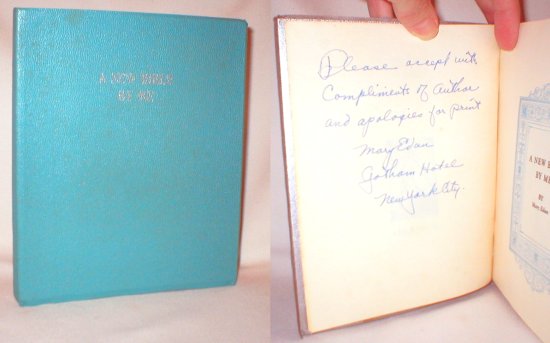 A NEW BIBLE
BY ME
Please accept with
Compliments of Author
and apologies for print
Mary Edan
Gotham Hotel
New York City.
A NEW
BY ME
BY
Mary